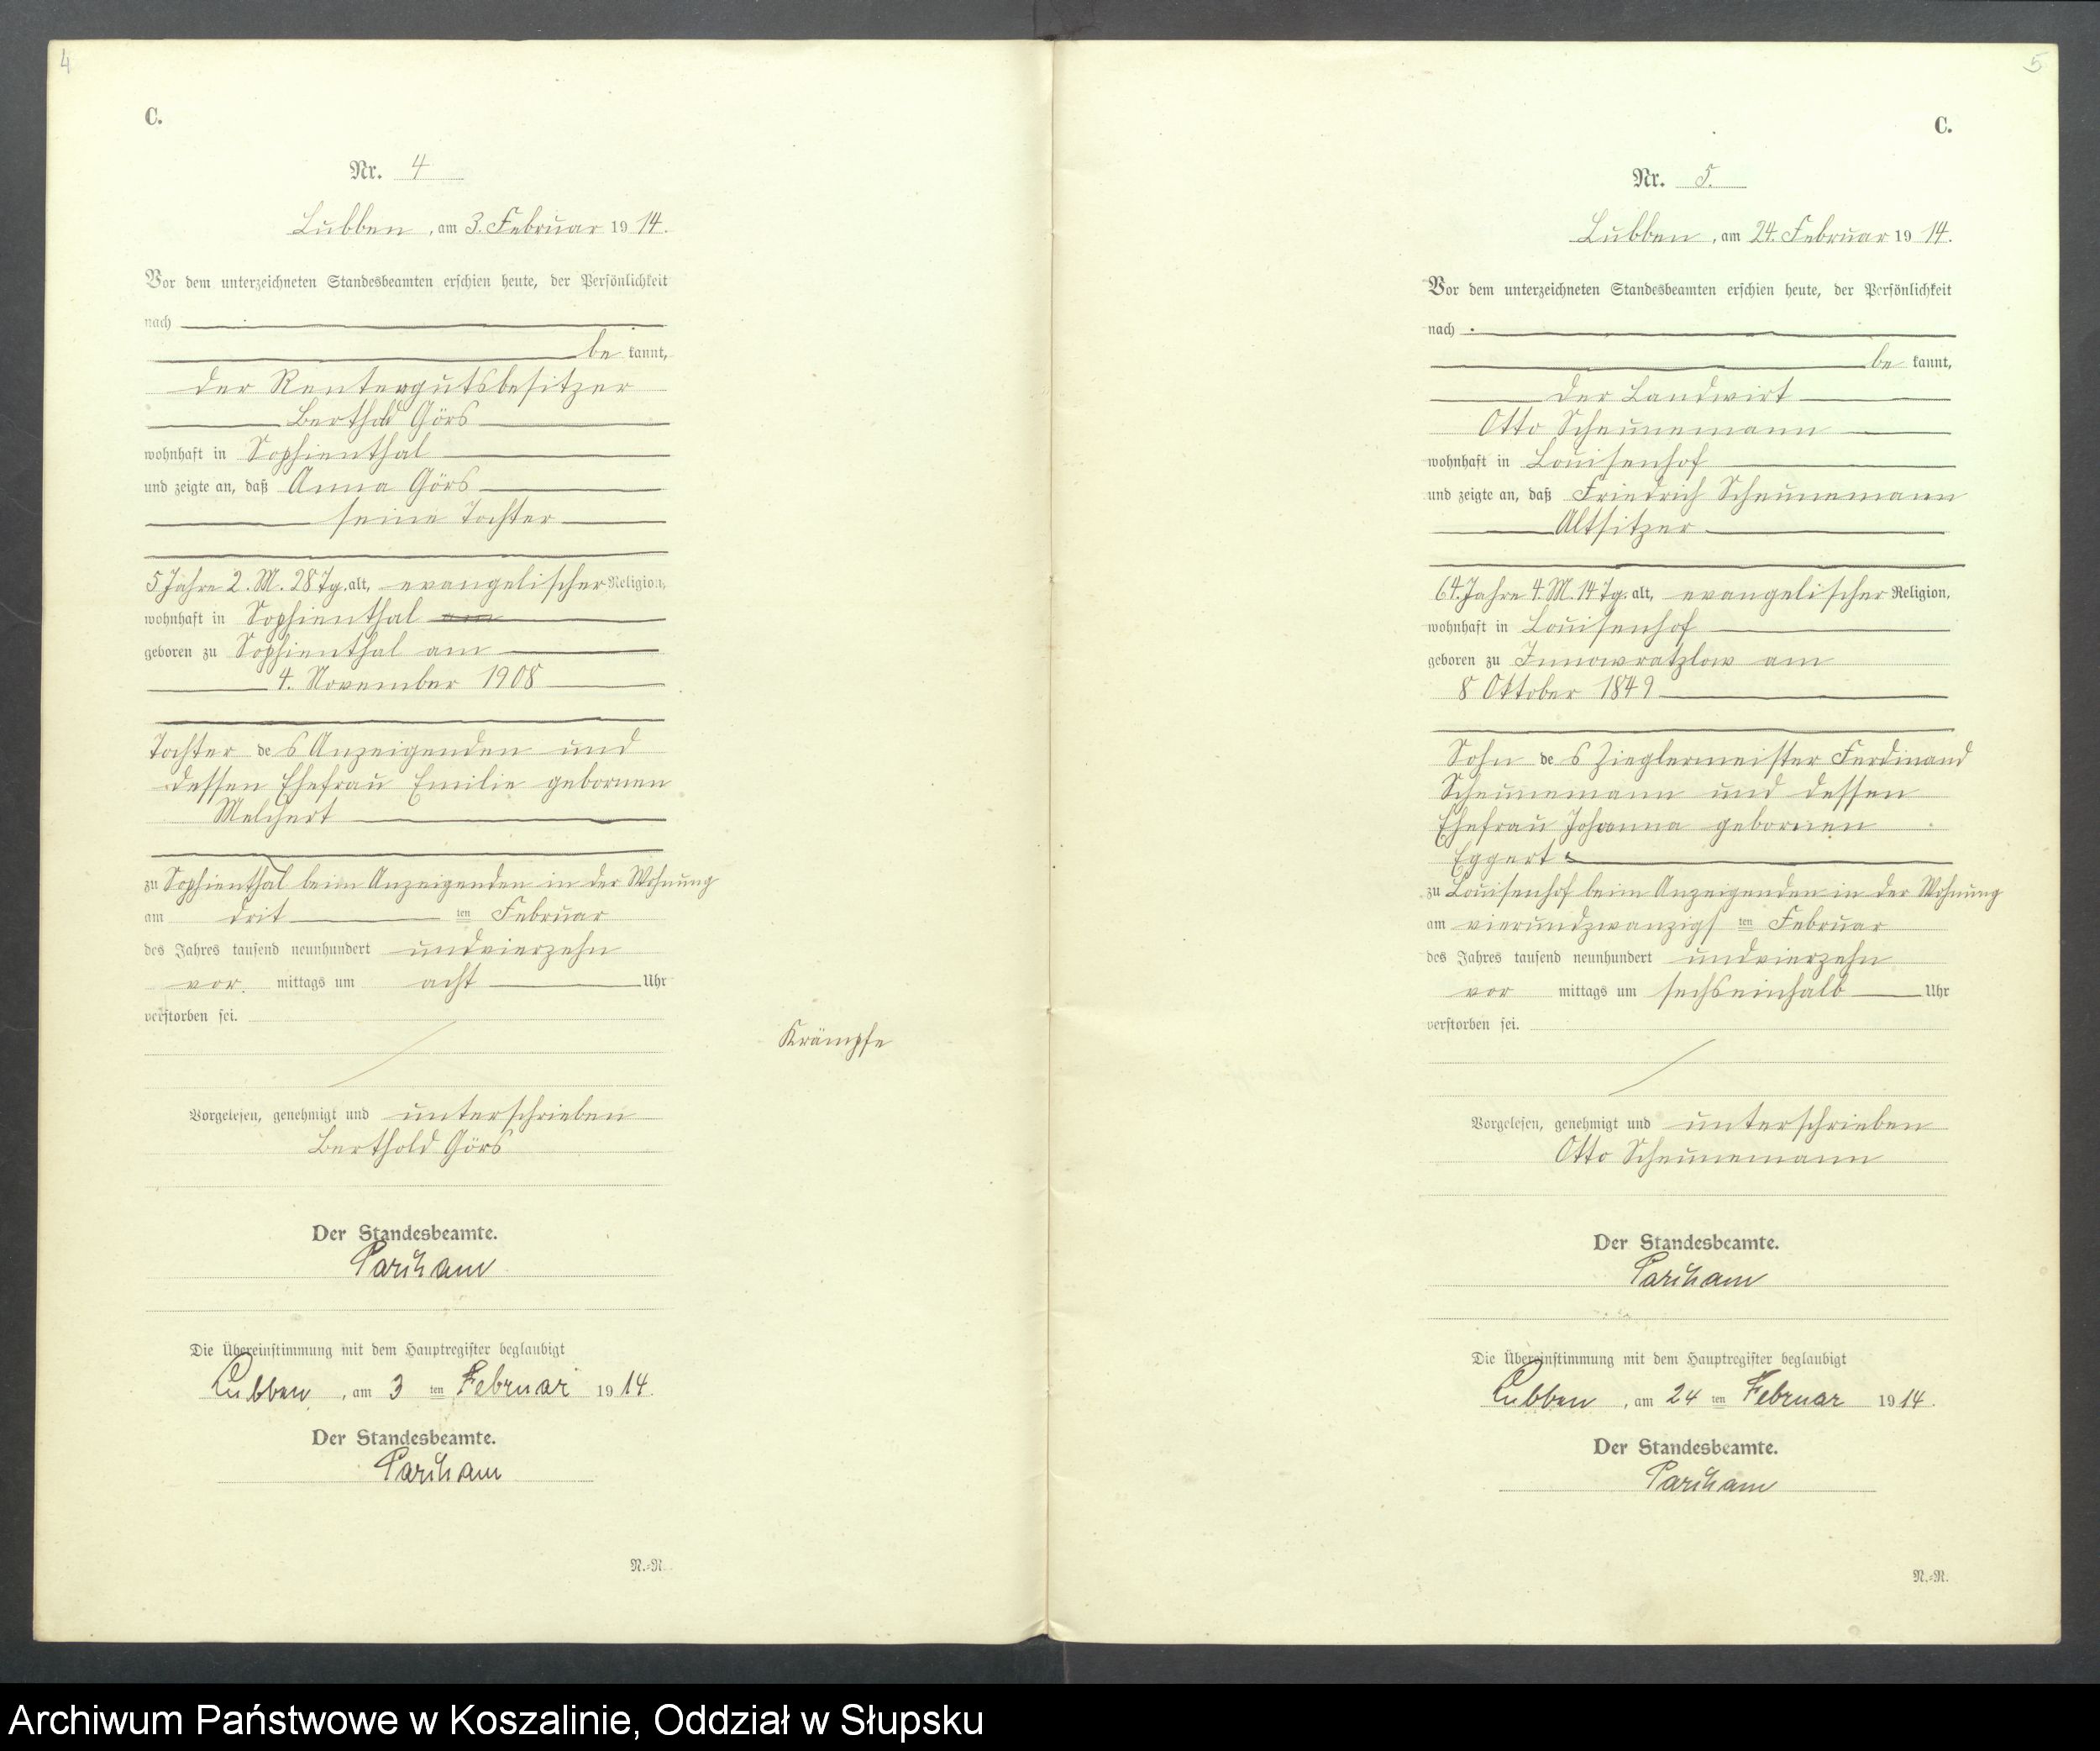 4
C.
Nr. 4
Lübben, am 3. Februar 1914.
Vor dem unterzeichneten Standesbeamten erschien heute, der Persönlichkeit
nach
be kannt,
der Rentergutsbesitzer
Berthold Görs
wohnhaft in Sophienthal
und zeigte an, daß Anna Görs
seine Tochter
5 Jahre 2. M. 28 Tg. alt, evangelischer Religion,
wohnhaft in Sophienthal am
geboren zu Sophienthal am
4. November 1908
Tochter des Anzeigenden und
dessen Ehefrau Emilie gebornen
Melchert
zu Sophienthal beim Anzeigenden in der Wohnung
am drit ten Februar
des Jahres tausend neunhundert undvierzehn
vor mittags um acht Uhr
verstorben sei.
Krämpfe
Vorgelesen, genehmigt und unterschrieben
Berthold Görs
Der Standesbeamte.
Die Übereinstimmung mit dem Hauptregister beglaubigt
Lubben, am 3 ten Februar 1914.
Der Standesbeamte.
N.=N.
5
C.
Nr. 5.
Lübben, am 24. Februar 1914.
Vor dem unterzeichneten Standesbeamten erschien heute, der Persönlichkeit
nach
be kannt,
der Landwirt
Otto Scheunemann
wohnhaft in Louisenhof
und zeigte an, daß Friedrich Scheunemann
Altsitzer
64. Jahre 4. M. 14 Tg. alt, evangelischer Religion,
wohnhaft in Louisenhof
geboren zu Innowratzlow am
8 Oktober 1849
Sohn des Zieglermeister Ferdinand
Scheunemann und dessen
Ehefrau Johanna gebornen
Eggert
zu Louisenhof beim Anzeigenden in der Wohnung
am vierundzwanzigs ten Februar
des Jahres tausend neunhundert undvierzehn
vor mittags um sechseinhalb Uhr
verstorben sei.
Vorgelesen, genehmigt und unterschrieben
Otto Scheunemann
Der Standesbeamte.
Die Übereinstimmung mit dem Hauptregister beglaubigt
Lubben, am 24 ten Februar 1914.
Der Standesbeamte.
N.=N.
Archiwum Państwowe w Koszalinie, Oddział w Słupsku